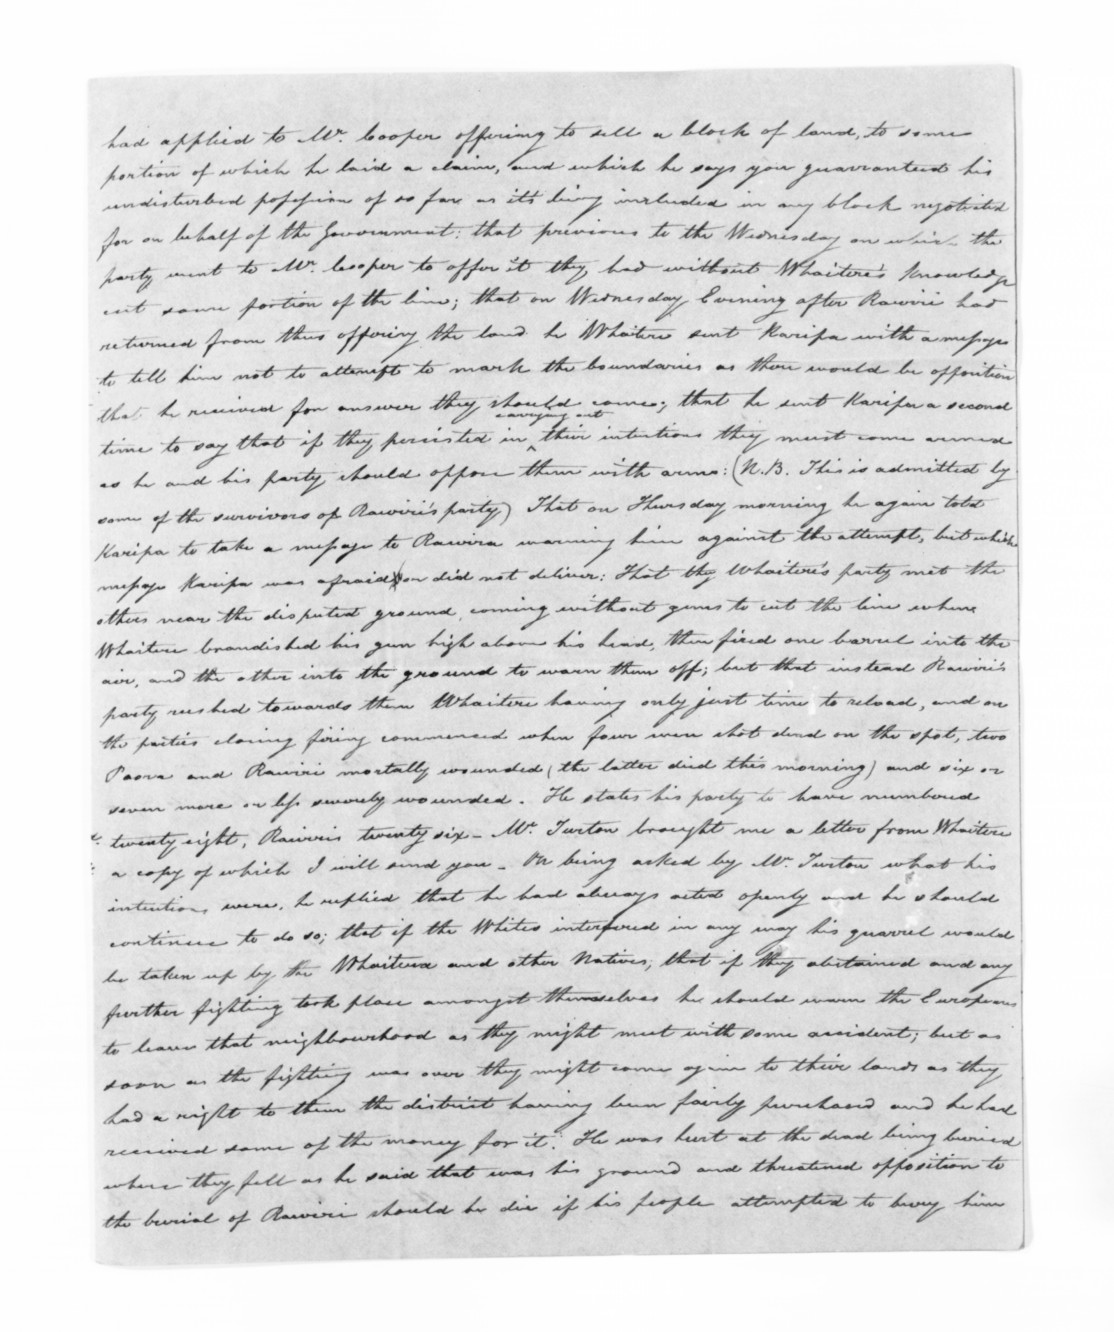 had applied to Mr. Cooper offering to sell a block of land, to some
portion of which he laid a claim, and which he says you guarranteed his
undisturbed possession of so far as it's being included in any block negotiated
for on behalf of the Government: that previous to the Wednesday on which the
party went to Mr. Cooper to offer it they had without Whaitere's knowledge
cut some portion of the line; that on Wednesday Evening after Rawiri had
returned from thus offering the land he Whaitere sent Karipa with a message
to tell him not to attempt to mark the boundaries as there would be opposition
that he received for answer they should come; that he sent Karipa a second
time to say that if they persisted in carrying out their intentions they must come armed
as he and his party should oppose them with arms: (N.B. This is admitted by
some of the survivors of Rawiri's party) That on Thursday morning he again told
Karipa to take a message to Rawira warning him against the attempt, but which
message Karipa was afraid or did not deliver: That they Whaitere's party met the
others near the disputed ground coming without guns to cut the line where
Whaitere brandished his gun high above his head, then fired one barrel into the
air, and the other into the ground to warn them off; but that instead Rawiri's
party rushed towards them Whaitere having only just time to reload, and on
the parties closing firing commenced when four were shot dead on the spot, two
Paora and Rawiri mortally wounded (the latter died this morning) and six or
seven more or less severely wounded. He states his party to have numbered
twenty eight, Rawiri's twenty six - Mr. Turton brought me a letter from Whaitere
a copy of which I will send you - On being asked by Mr. Turton what his
intentions were, he replied that he had always acted openly and he should
continue to do so; that if the Whites interfered in any way his quarrel would
be taken up by the Whaitera and other Natives; that if they abstained and any
further fighting took place amongst themselves he should warn the Europeans
to leave that neighbourhood as they might meet with some accident; but as
soon as the fighting was over they might come again to their lands as they
had a right to them the district having been fairly purchased and he had
received some of the money for it. He was hurt at the dead being buried
where they fell as he said that was his ground and threatened opposition to
the burial of Rawiri should he die if his people attempted to bury him